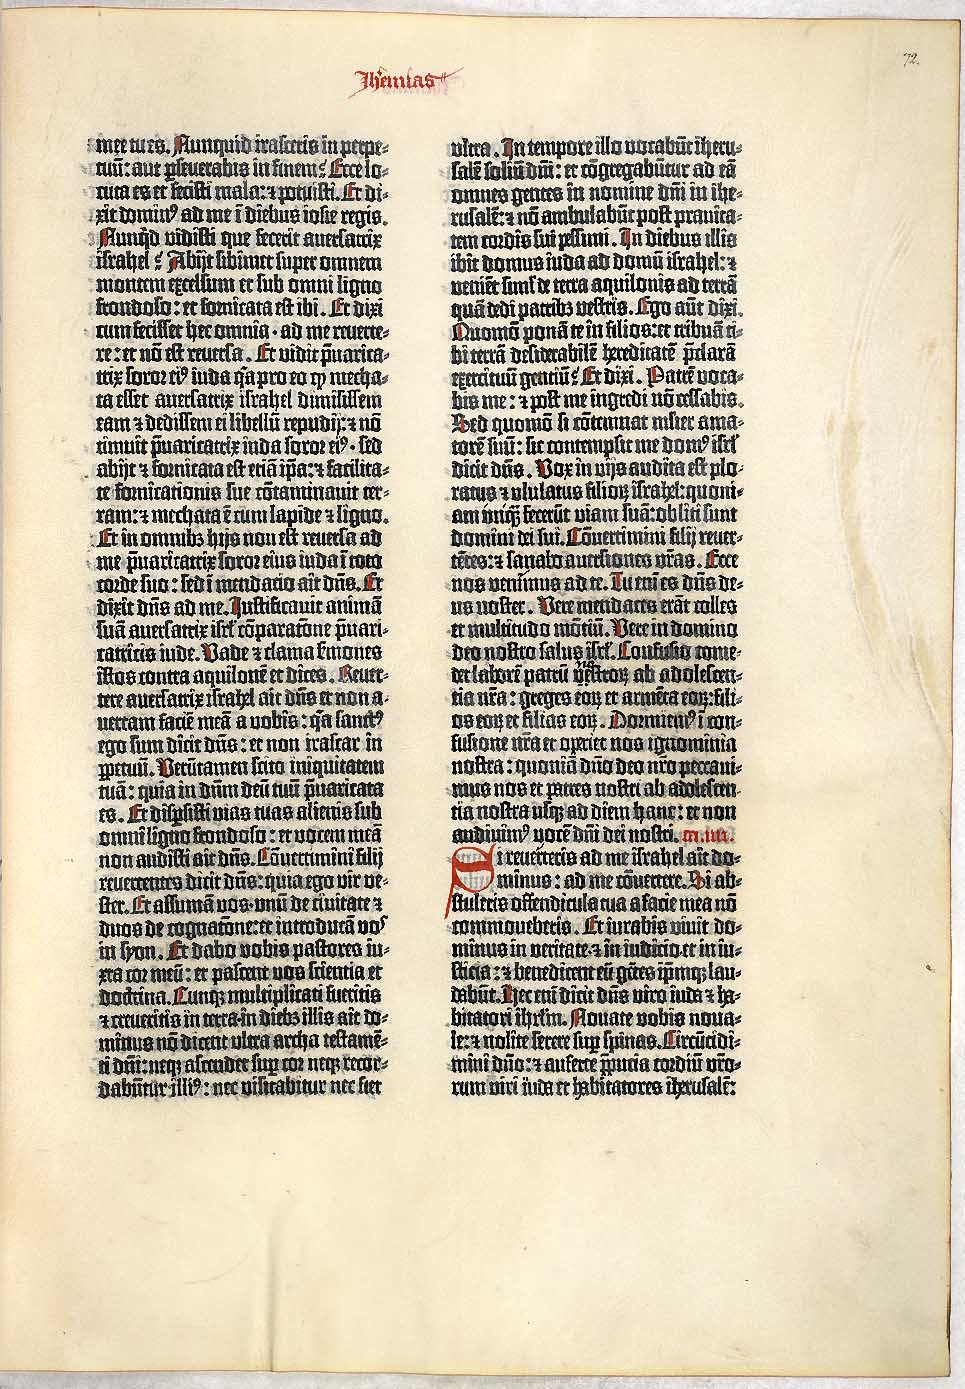 Jheremias
72.
mee tu es. Nunquid irasceris in perpe-
tuū: aut pseuerabis in finem? Ecce lo-
cuta es et fecisti mala: ⁊ potuisti. Et di-
xit dominꝰ ad me ī diebus iosie regis.
Nunqͥd vidisti que fecerit auersatrix
israhel? Abijt sibimet super omnem
montem excelsum et sub omni ligno
frondoso: et fornicata est ibi. Et dixi
cum fecisset hec omnia· ad me reuerte-
re: et nō est reuersa. Et vidit p̄uarica-
trix soror eiꝰ iuda qͣa pro eo ꝙ mecha-
ta esset auersatrix israhel dimisissem
eam ⁊ dedissem ei libellū repudij: ⁊ nō
timuit p̄uaricatrix iuda soror eiꝰ· sed
abijt ⁊ fornicata est etiā ip̄a: ⁊ facilita-
te fornicationis sue cōtaminauit ter-
ram: ⁊ mechata ē cum lapide ⁊ ligno.
Et in omnibꝫ hijs non est reuersa ad
me p̄uaricatrix soror eius iuda ī toto
corde suo: sed ī mendacio ait dn̄s. Et
dixit dn̄s ad me. Justificauit animā
suā auersatrix isrl̄ cōparatōne p̄uari-
catricis iude. Vade ⁊ clama f̄mones
istos contra aquilonē et dices. Reuer-
tere auersatrix israhel ait dn̄s et non a-
uertam faciē meā a vobis: qͣa sanctꝰ
ego sum dicit dn̄s: et non irascar in
ꝑpetuū. Verūtamen scito iniquitatem
tuā: quia in dn̄m deū tuū p̄uaricata
es. Et dispsisti vias tuas alienis sub
omni ligno frondoso: et vocem meā
non audisti ait dn̄s. Cōuertimini filij
reuertentes dicit dn̄s: quia ego vir ve-
ster. Et assumā vos· vnū de ciuitate ⁊
duos de cognatōne: et introducā voˢ
in syon. Et dabo vobis pastores iu-
xta cor meū: et pascent vos scientia et
doctrina. Cunqꝫ multiplicati fueritis
⁊ creueritis in terra· in diebꝫ illis ait do-
minus nō dicent vltra archa testamē-
ti dn̄i: neqꝫ ascendet suꝑ cor neqꝫ recor-
dabūtur illiꝰ: nec visitabitur nec fiet
vltra. In tempore illo vocabūt iheru-
salē soliū dn̄i: et cōgregabūtur ad eā
omnes gentes in nomine dn̄i in ihe-
rusalē: ⁊ nō ambulabūt post prauita-
tem cordis sui pessimi. In diebus illis
ibit domus iuda ad domū israhel: ⁊
veniēt simͥl de terra aquilonis ad terrā
quā dedi patribꝫ vestris. Ego aūt dixi.
Quomō ponā te in filios: et tribuā ti-
bi terrā desiderabilē hereditatē p̄clarā
exercituū gentiū? Et dixi. Patrē voca-
bis me: ⁊ post me ingredi nō cessabis.
Sed quomō si cōtemnat mlier ama-
torē suū: sic contempsit me domꝰ isrl̄
dicit dn̄s. Vox in vijs audita est plo-
ratus ⁊ vlulatus filioꝝ israhel: quoni-
am iniqͣ fecerūt viam suā: obliti sunt
domini dei sui. Cōuertimini filij reuer-
tētes: ⁊ sanabo auersiones vr̄as. Ecce
nos venimus ad te. Tu eni es dn̄s de-
us noster. Vere mendaces erāt colles
et multitudo mōtiū. Vere in domino
deo nostro salus isrl̄. Confusio come-
det laborē patrū nostroꝝ ab adolescen-
tia nr̄a: greges eoꝝ et armēta eoꝝ: fili-
os eoꝝ et filias eoꝝ. Dormiemꝰ ī con-
fusione nr̄a et operiet nos ignominia
nostra: quoniā dn̄o deo nr̄o peccaui-
mus nos et patres nostri ab adolescen-
tia nostra vsqꝫ ad diem hanc: et non
audiuimꝰ vocē dn̄i dei nostri. ca. iiii.
Si reuerteris ad me israhel ait do-
minus: ad me cōuertere. Si ab-
stuleris offendicula tua a facie mea nō
commoueberis. Et iurabis viuit do-
minus in veritate· ⁊ in iudicio· et in iu-
sticia: ⁊ benedicent eū gētes ip̄mqꝫ lau-
dabūt. Hec eni dicit dn̄s viro iuda ⁊ ha-
bitatori ihrlm̄. Nouate vobis noua-
le: ⁊ nolite serere suꝑ spinas. Circūcidi-
mini dn̄o: ⁊ auferte p̄pucia cordiū vr̄o-
rum viri iuda et habitatores iherusalē: